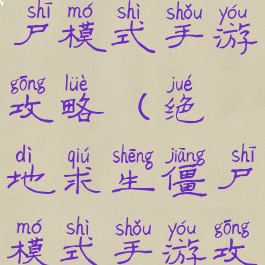 shī mó shì shǒu yóu
尸模式手游
gōng lüè jué
攻略(绝
dì qiú shēng jiāng shī
地求生僵尸
mó shì shǒu yóu gōng
模式手游攻